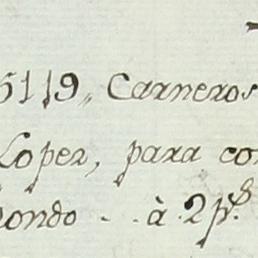 5119,, Carneros
Lopez, para con
ondo . . à 2 p.s